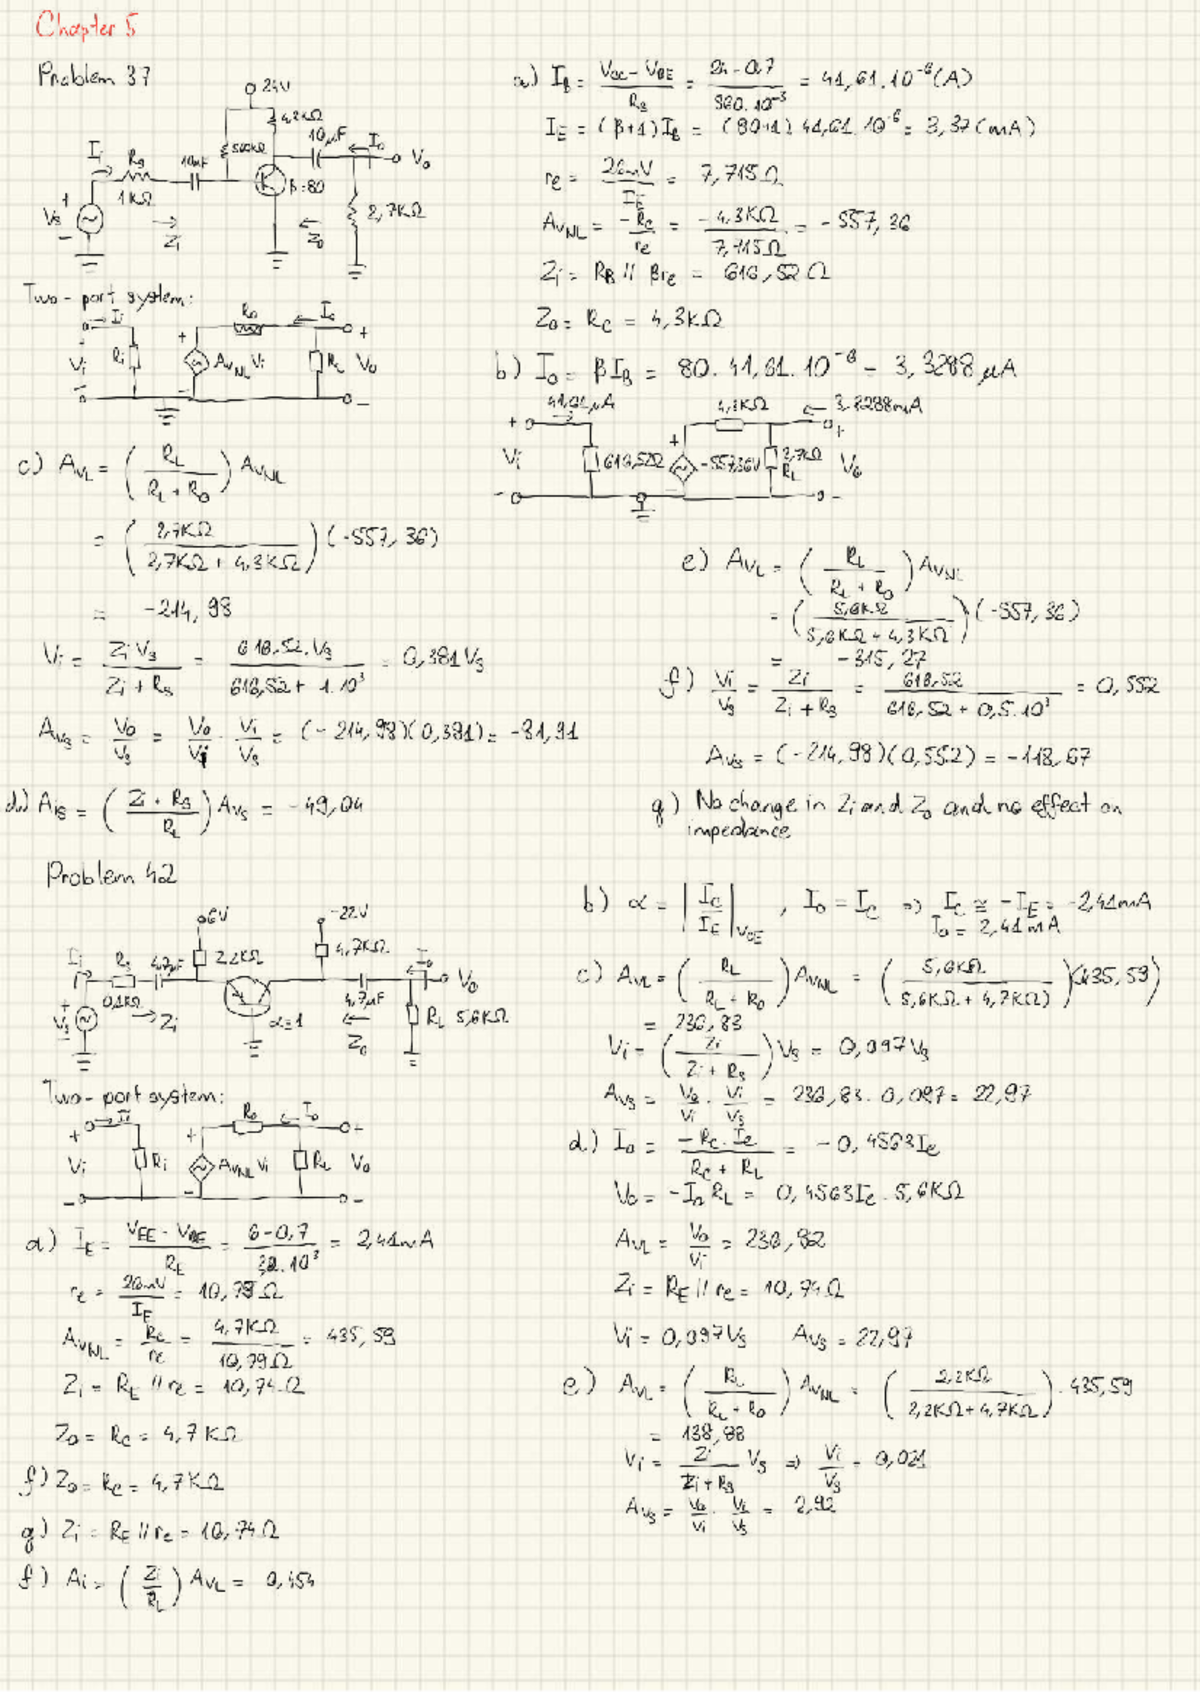 Chapter 5
Problem 37
24V
4,3KΩ
560KΩ
10µF
Io
Vo
Ii
Rs
10µF
β=80
1KΩ
Vs
Zi
Zo
2,7KΩ
Two-port system:
Ii
Ro
Io
Vi
Ri
AvNL Vi
RL
Vo
a) IB = (Vcc - VBE)/RB = (24 - 0,7)/(560.10^-3) = 41,61.10^-6 (A)
IE = (β+1)IB = (80+1) 41,61.10^-6 = 3,37(mA)
re = 26mV/IE = 7,715Ω
AvNL = -Rc/re = -4,3KΩ/7,715Ω = -557,36
Zi = RB // βre = 616,52Ω
Zo = Rc = 4,3KΩ
b) Io = βIB = 80. 41,61. 10^-6 = 3,3288µA
41,61µA
4,3KΩ
3,3288mA
Vi
616,52Ω
-557,36V
2,7KΩ
RL
Vo
c) AvL = (RL/(RL + Ro)) AvNL
= (2,7KΩ/(2,7KΩ + 4,3KΩ)) (-557,36)
= -214,98
Vi = Zi Vs/(Zi + Rs) = 616,52.Vs/(616,52 + 1.10³) = 0,381Vs
Avs = Vo/Vs = Vo/Vi . Vi/Vs = (-214,98)(0,381) = -81,91
d) Ais = ((Zi + Rs)/RL) Avs = -49,04
e) AvL = (RL/(RL + Ro)) AvNL
= (5,6KΩ/(5,6KΩ + 4,3KΩ)) (-557,36)
= -315,27
f) Vi/Vs = Zi/(Zi + Rs) = 616,52/(616,52 + 0,5.10³) = 0,552
Avs = (-214,98)(0,552) = -118,67
g) No change in Zi and Zo and no effect on
impedance
Problem 42
6V
-22V
Ii
Rs
4,7µF
2,2KΩ
4,7KΩ
Io
Vo
0,1KΩ
Vs
Zi
α=1
4,7µF
Zo
RL 5,6KΩ
Two-port system:
Ii
Ro
Io
Vi
Ri
AvNL Vi
RL
Vo
a) IE = (VEE - VBE)/RE = (6-0,7)/(2,2.10³) = 2,41mA
re = 26mV/IE = 10,79Ω
AvNL = Rc/re = 4,7KΩ/10,79Ω = 435,59
Zi = RE // re = 10,74Ω
Zo = Rc = 4,7KΩ
f) Zo = Rc = 4,7KΩ
g) Zi = RE // re = 10,74Ω
f) Ai = (Zi/RL) AvL = 0,454
b) α = |Ic/IE|VCE , Io = Ic ⇒ Ic ≅ -IE = -2,41mA
Io = 2,41mA
c) AvL = (RL/(RL + Ro)) AvNL = (5,6KΩ/(5,6KΩ + 4,7KΩ)) (435,59)
= 236,83
Vi = (Zi/(Zi + Rs)) Vs = 0,097Vs
Avs = Vo/Vi . Vi/Vs = 236,83. 0,097 = 22,97
d) Io = -Rc. Ie/(Rc + RL) = -0,4563Ie
Vo = -Io RL = 0,4563Ie . 5,6KΩ
AvL = Vo/Vi = 236,82
Zi = RE // re = 10,74Ω
Vi = 0,097Vs Avs = 22,97
e) AvL = (RL/(RL + Ro)) AvNL = (2,2KΩ/(2,2KΩ + 4,7KΩ)) . 435,59
= 138,88
Vi = Zi/(Zi + Rs) Vs ⇒ Vi/Vs = 0,021
Avs = Vo/Vi . Vi/Vs = 2,92